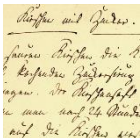 Kirschen mit Zucker.
sauren Kirschen, die K
kochenden Zuckersirup
gen. Der Kirschensaft
man noch 24 Stunden
auf die Kirschen